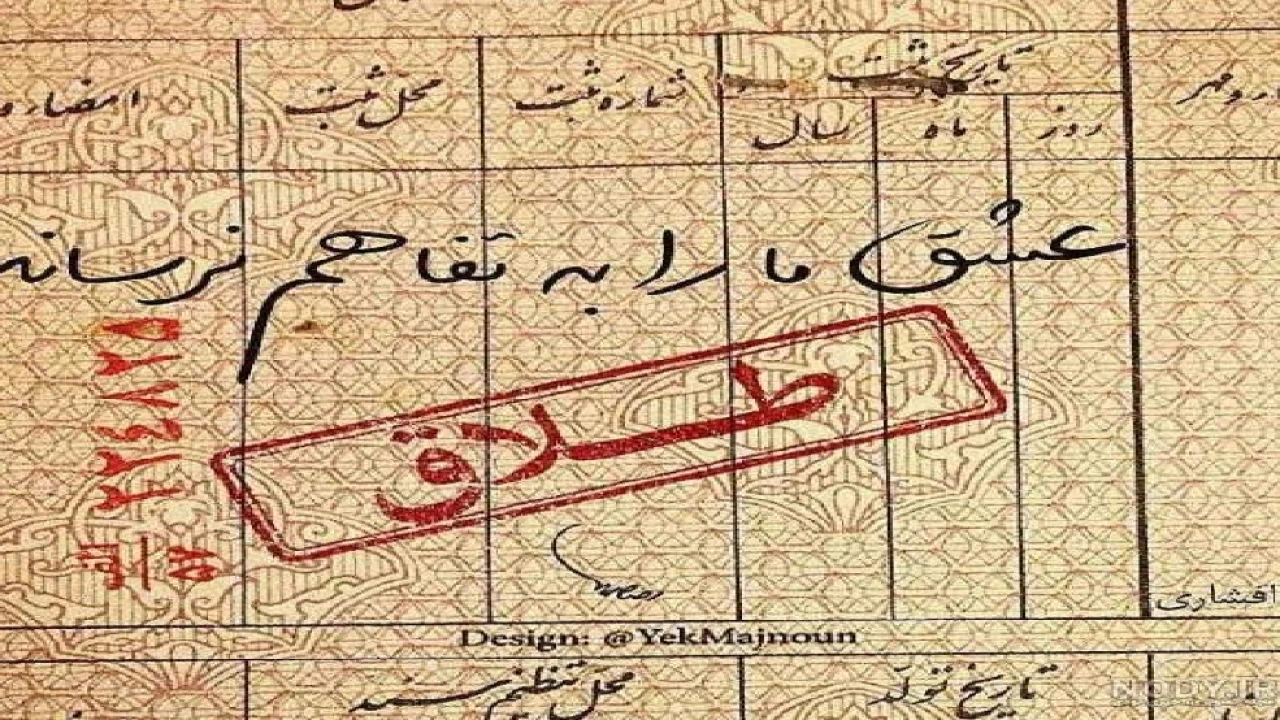 تاریخ ثبت
شماره ثبت
محل ثبت
روز
ماه
سال
عشق ما را به تفاهم نرساند
طلاق
۲۲۴۸۲۵
الف
افشاری
Design: @YekMajnoun
تاریخ تولد
محل تنظیم سند
NODY.IR